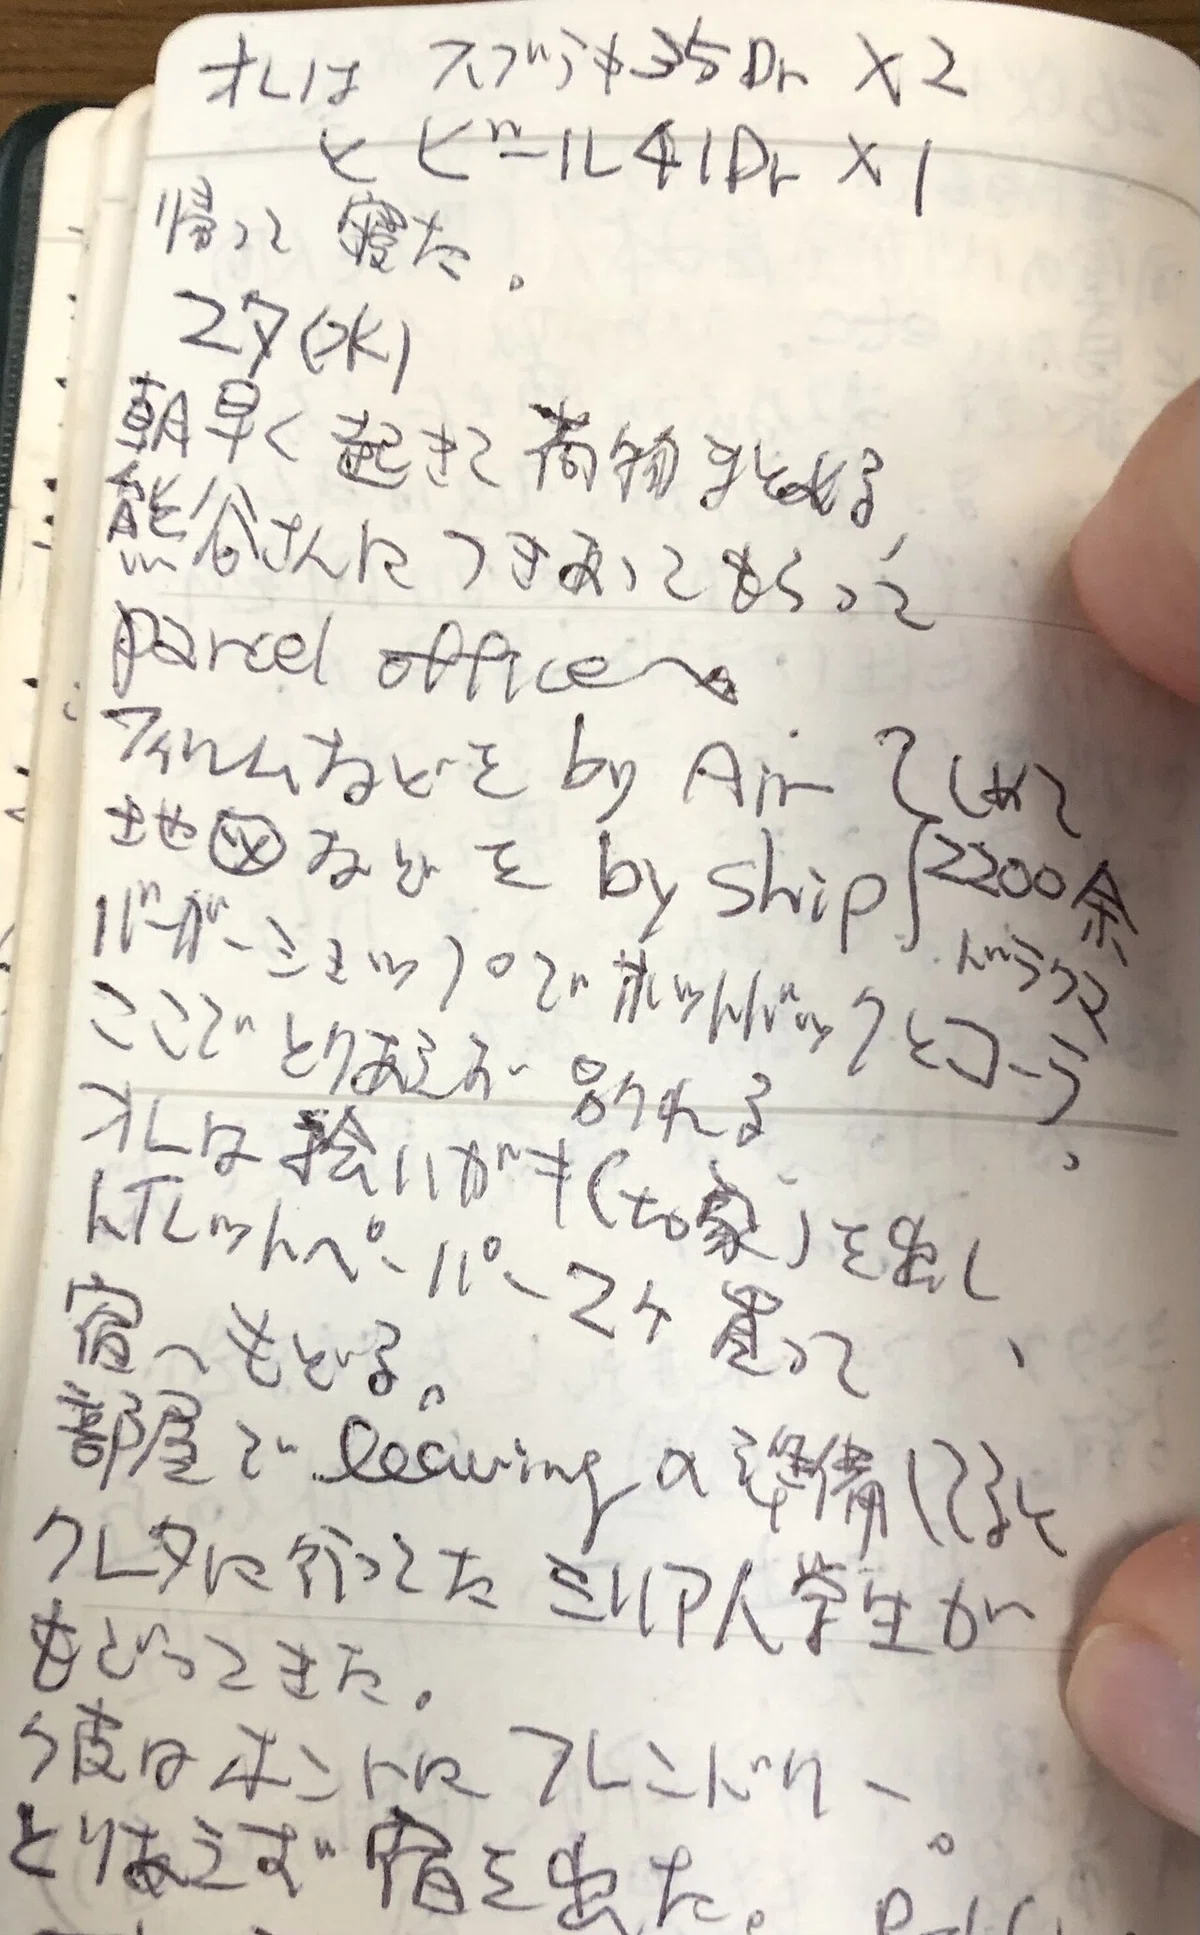 オレは スブラキ35Dr ×2
と ビール41Dr ×1
帰って 寝た。
27(水)
朝早く起きて荷物まとめる、
熊谷さんにつきあってもらって
parcel officeへ
フィルムなどを by Air
地図などを by ship
しめて
2200余
ドラクマ
バーガーショップでホットドッグとコーラ。
ここでとりあえず別れる
オレは絵ハガキ(to家)を出し、
トイレットペーパー2ケ買って
宿へもどる。
部屋でleavingの準備してると
クレタに行ってたシリア人学生が
もどってきた。
彼はホントにフレンドリー。
とりあえず宿を出た。